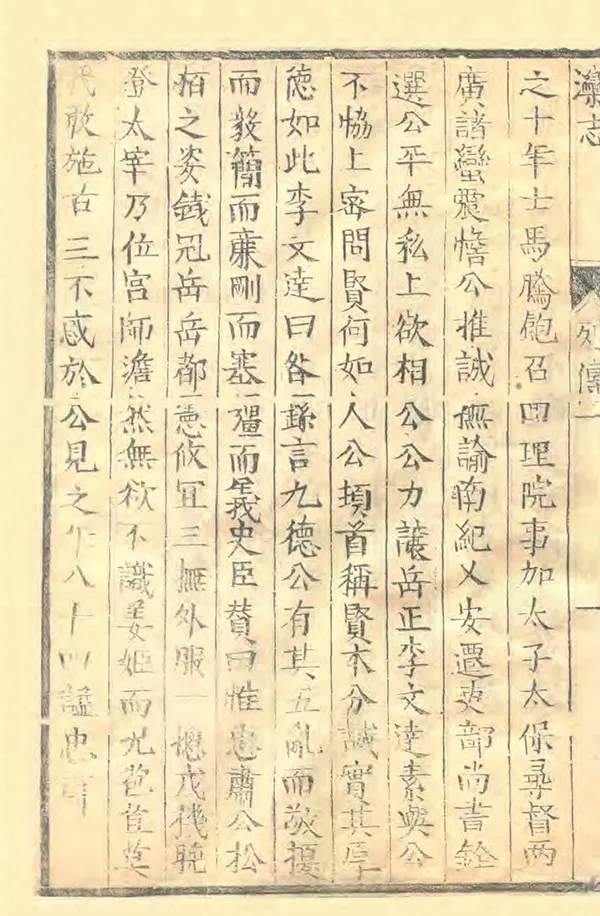 灤志
列傳一
之十年士馬騰飽召回理院事加太子太保尋督两
廣諸蠻震憺公推誠無諭南紀乂安遷吏部尚書銓
選公平無私上欲相公公力讓岳正李文達素與公
不恊上密問賢何如人公頓首稱賢本分誠實其厚
德如此李文達曰咎繇言九德公有其五亂而敬擾
而毅簡而廉剛而塞彊而義史臣贊曰惟忠肅公松
栢之姿銕冠岳岳都憲攸宜三撫外服一總戎機晚
登太宰乃位宮師澹然無欲不識妾姬而况苞苴莫
我敢施古三不惑於公見之年八十四謚忠肅